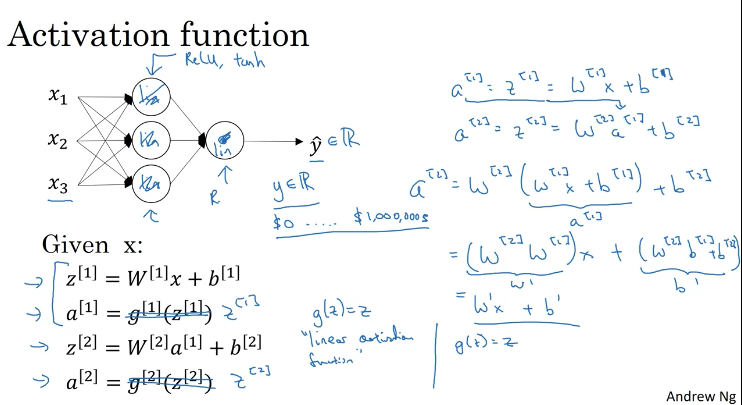 Activation function
ReLU, tanh
x₁
x₂
x₃
lin
ŷ ∈ ℝ
ℝ
y ∈ ℝ
$0 ..... $1,000,000s
Given x:
z^[1] = W^[1]x + b^[1]
a^[1] = g^[1](z^[1]) z^[1]
z^[2] = W^[2]a^[1] + b^[2]
a^[2] = g^[2](z^[2]) z^[2]
g(z) = z
"linear activation
function"
a^[1] = z^[1] = W^[1]x + b^[1]
a^[2] = z^[2] = W^[2]a^[1] + b^[2]
a^[2] = W^[2](W^[1]x + b^[1]) + b^[2]
a^[1]
= (W^[2]W^[1])x + (W^[2]b^[1] + b^[2])
W' b'
= W'x + b'
g(z) = z
Andrew Ng